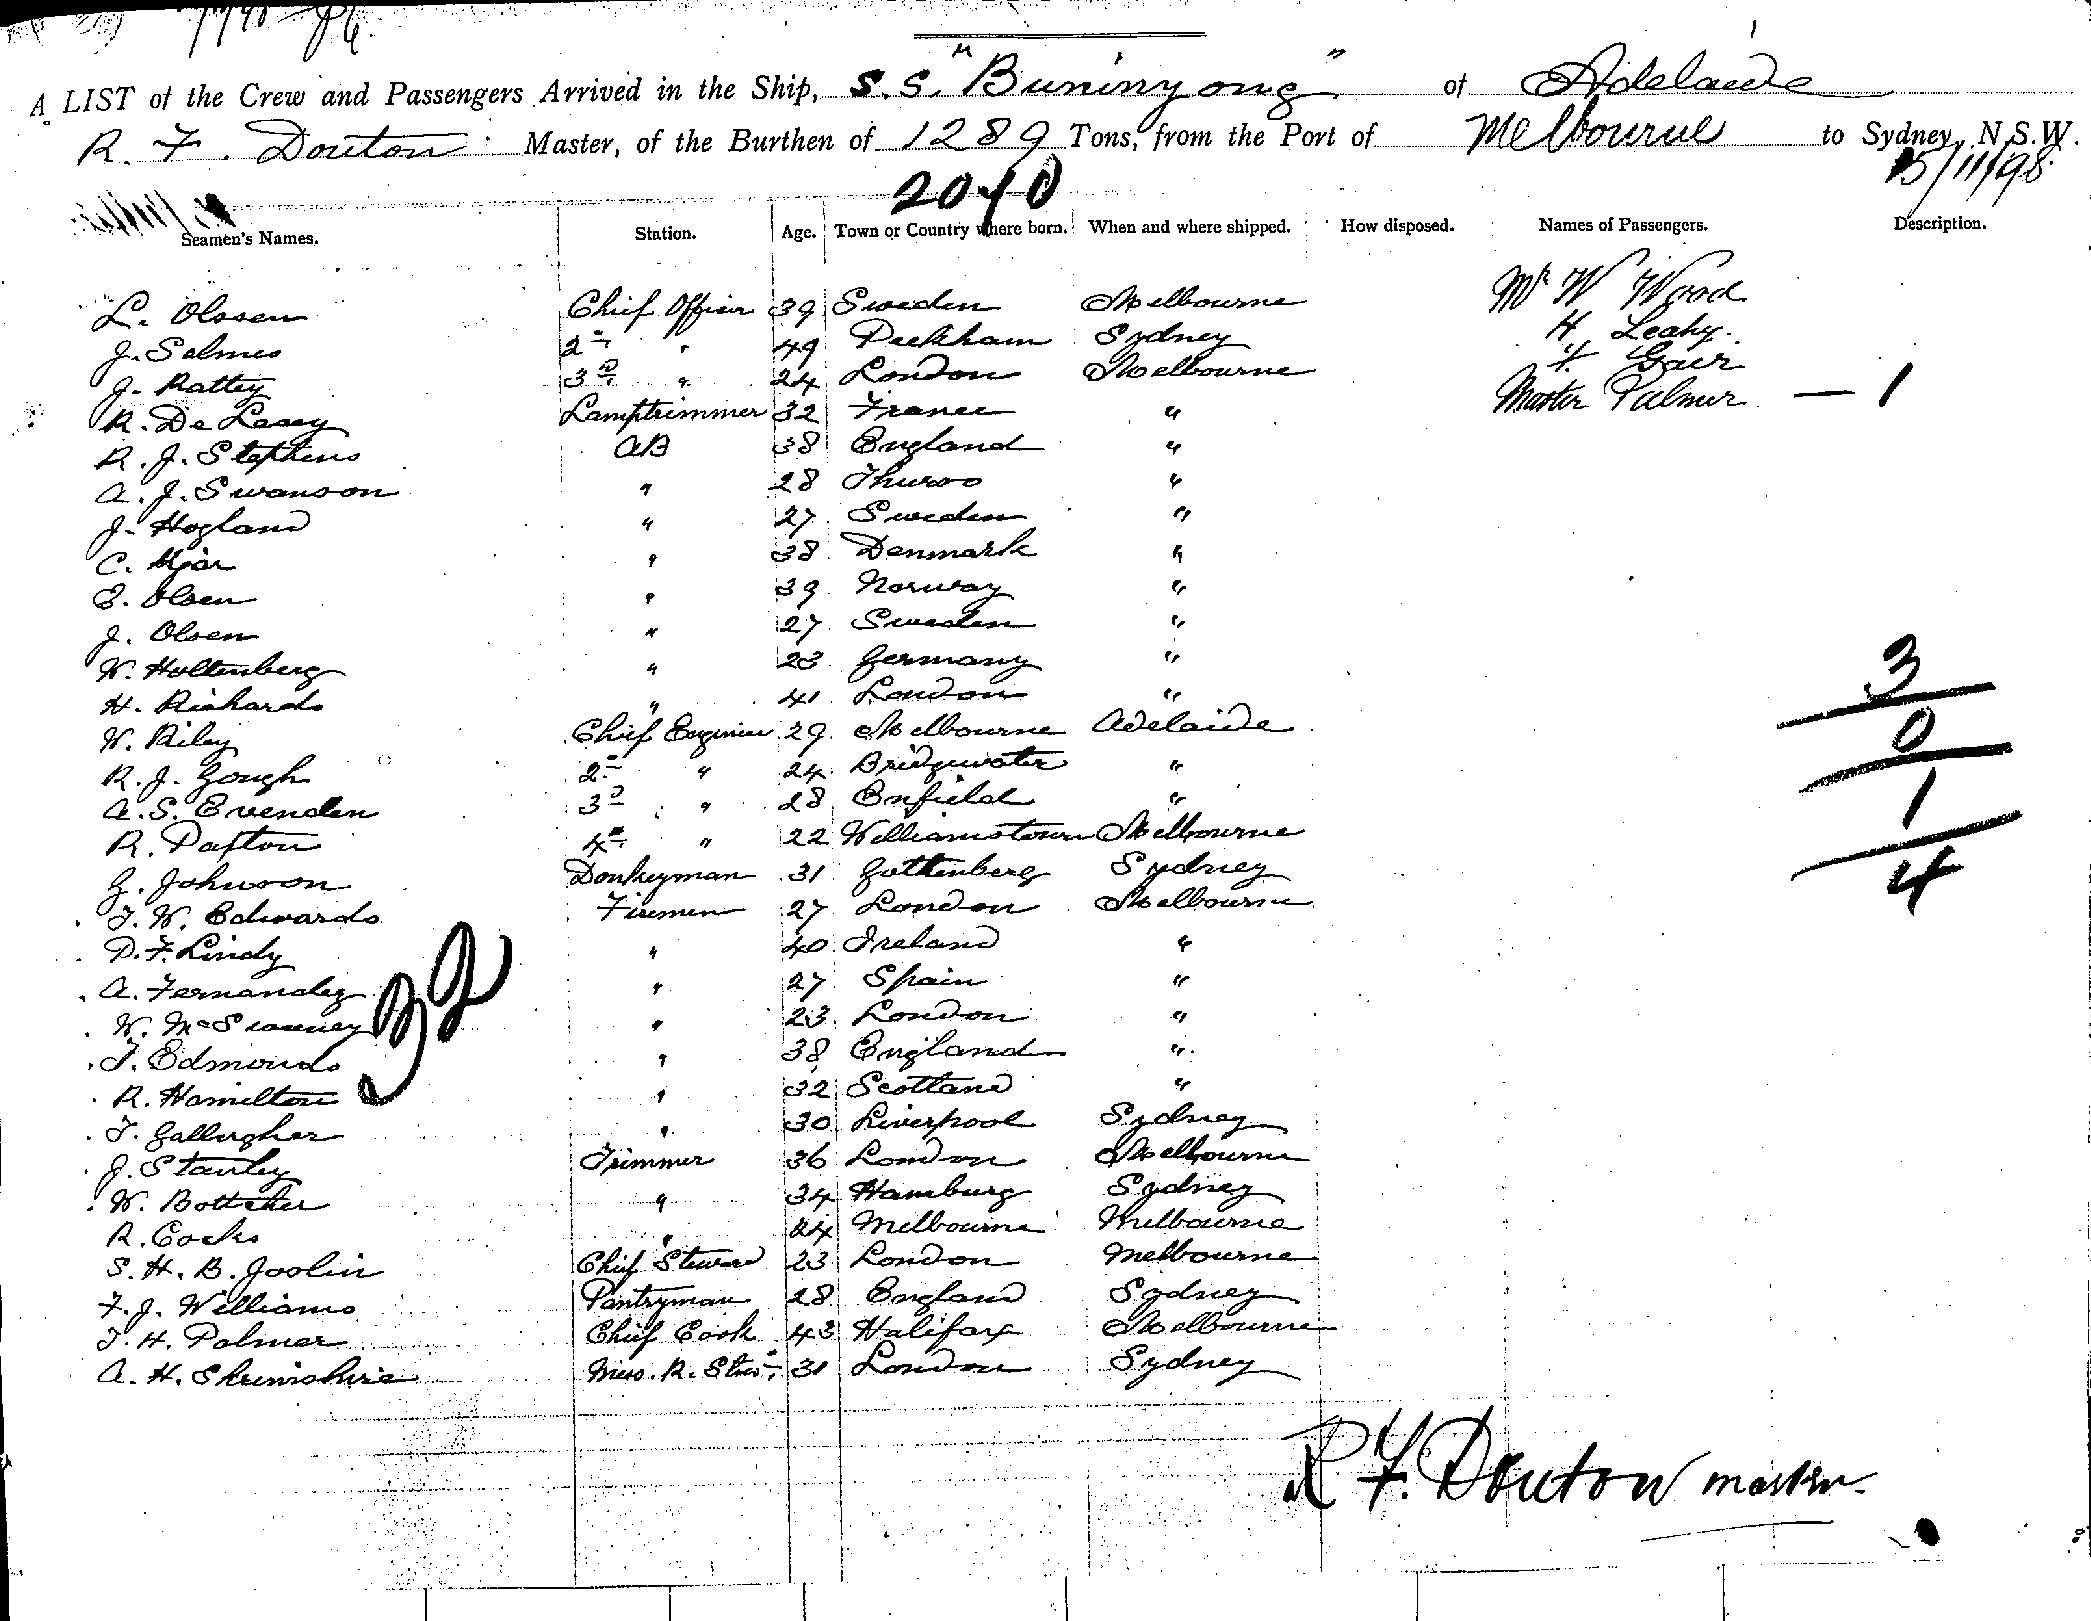 A LIST of the Crew and Passengers Arrived in the Ship, S.S. "Buninyong" of Adelaide
R. F. Douton Master, of the Burthen of 1289 Tons, from the Port of Melbourne to Sydney, N.S.W.
15/11/98
2040
Seamen's Names. Station. Age. Town or Country where born. When and where shipped. How disposed. Names of Passengers. Description.
L. Olssen Chief Officer 39 Sweden Melbourne Mr W Wood
J. Salmes 2nd " 49 Peckham Sydney H. Leahy.
J. Rattey 3rd " 24 London Melbourne F. Gair
R. De Lacey Lamptrimmer 32 France " Master Palmer — 1
R. J. Stephens AB 38 England "
A. J. Swanson " 28 Thurso "
J. Hogland " 27 Sweden "
C. Kjar " 38 Denmark "
E. Olsen " 39 Norway "
J. Olsen " 27 Sweden "
W. Holtenberg " 23 Germany "
H. Richards " 41 London "
W. Riley Chief Engineer 29 Melbourne Adelaide
R. J. Gough 2nd " 24 Bridgwater "
A. S. Evenden 3rd " 28 Enfield "
R. Paxton 4th " 22 Williamstown Melbourne
G. Johnson Donkeyman 31 Guttenberg Sydney
T. W. Edwards Firemen 27 London Melbourne
D. F. Lindy " 40 Ireland "
A. Fernandez " 27 Spain "
W. McSweeney " 23 London "
T. Edmonds " 38 England "
R. Hamilton " 32 Scotland "
T. Gallagher " 30 Liverpool Sydney
J. Stanley Trimmer 36 London Melbourne
W. Bottcher " 34 Hamburg Sydney
R. Cocks " 24 Melbourne Melbourne
S. H. B. Joolin Chief Steward 23 London Melbourne
F. J. Williams Pantryman 28 England Sydney
T. H. Palmer Chief Cook 43 Halifax Melbourne
A. H. Skrimshire Mess. R. Stewd 31 London Sydney
32
3
0
1
4
R F. Douton master.